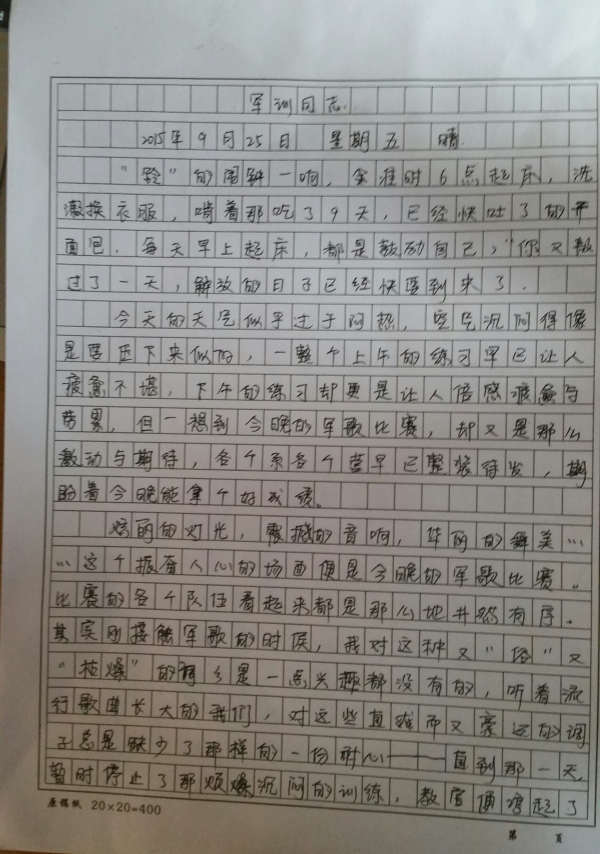 军训日志.
2015年9月25日 星期五 晴.
"铃"的闹钟一响,全准时6点起床,洗
漱换衣服,啃着那吃了9天,已经快吐了的干
面包.每天早上起床,都是鼓励自己,"你又熬
过了一天,解放的日子已经快要到来了.
今天的天气似乎过于闷热,空气沉闷得像
是要压下来似的,一整个上午的练习早已让人
疲惫不堪,下午的练习却更是让人倍感疲惫与
劳累,但一想到今晚的军歌比赛,却又是那么
激动与期待,各个系各个营早已整装待发,期
盼着今晚能拿个好成绩。
炫丽的灯光,震撼的音响,华丽的舞美…
…这个振奋人心的场面便是今晚的军歌比赛。
比赛的各个队伍看起来都是那么地井然有序.
其实刚接触军歌的时侯,我对这种又"俗"又
"枯燥"的是一点兴趣都没有的,听着流
行歌曲长大的我们,对这些直或而又豪迈的调
子总是缺少了那样的一份耐心——直到那一天,
暂时停止了那烦燥沉闷的训练,教官便唱起了
原稿纸 20×20=400
第 页